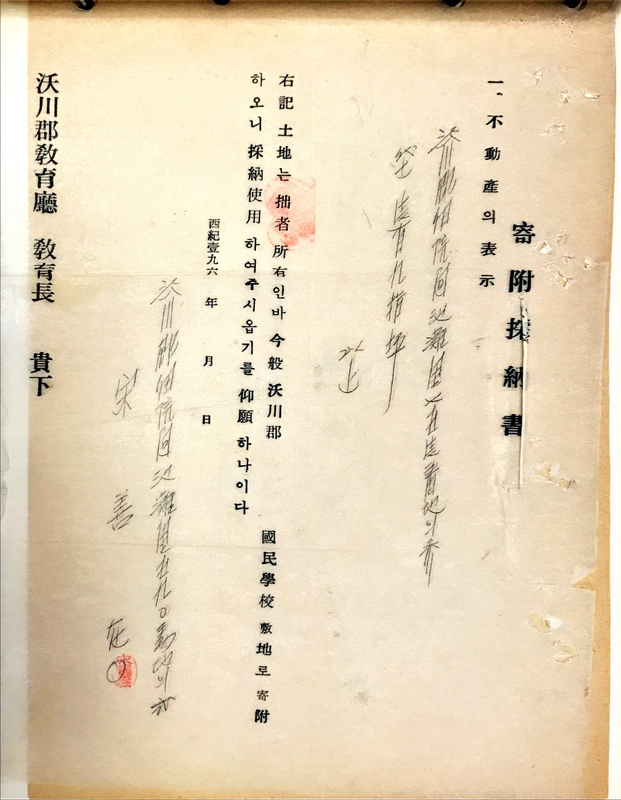 寄附採納書
一、不動産의表示
沃川郡伊院面池灘里
坪
以上
右記 土地는 拙者 所有인바 今般 沃川郡 國民學校 敷地로 寄附
하오니 採納使用 하여주시옵기를 仰願하나이다
西紀壹九六 年 月 日
沃川郡伊院面池灘里
宋 善 在
沃川郡教育廳 教育長 貴下